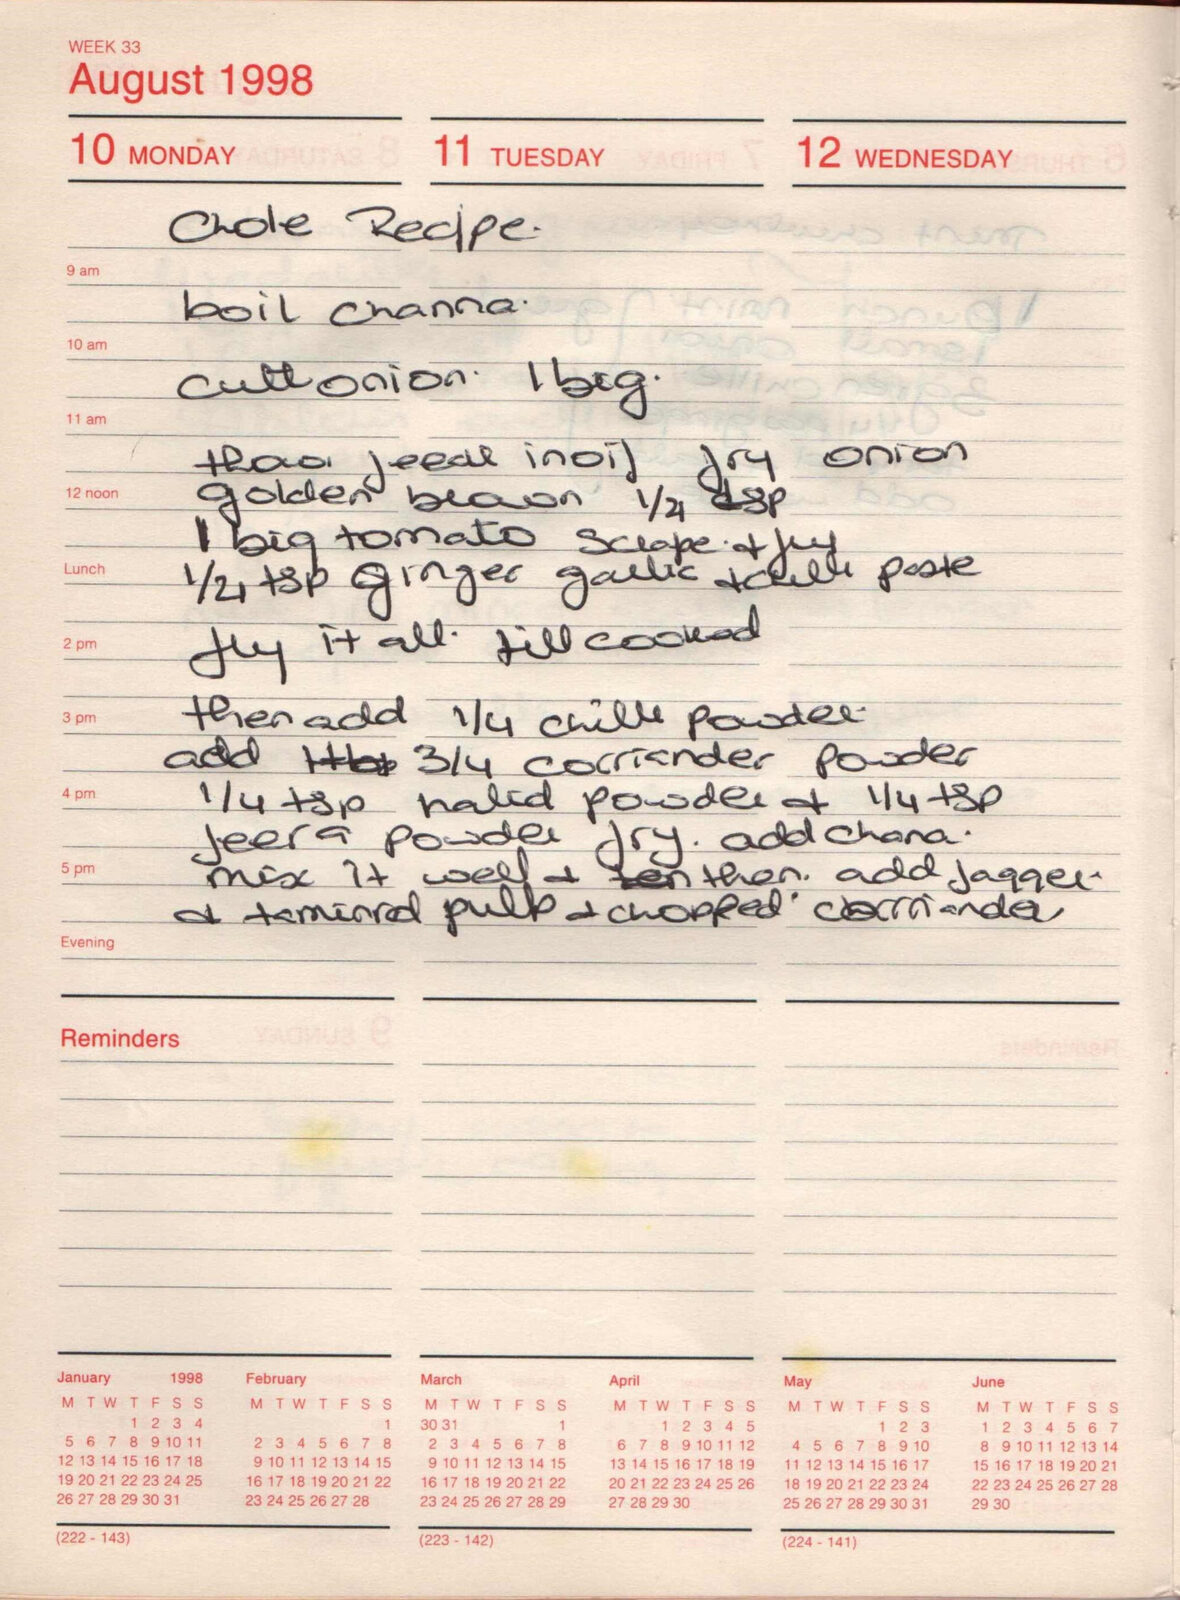 WEEK 33
August 1998
10 MONDAY 11 TUESDAY 12 WEDNESDAY
Chole Recipe.
9 am
boil channa.
10 am
cutt onion. 1 big.
11 am
jeera in oil fry onion
12 noon
golden brown 1/4 tsp
1 big tomato scrape. + fry
Lunch
1/4 tsp ginger garlic + chilli paste
2 pm
fry it all. till cooked
3 pm
then add 1/4 chilli powder.
add 3/4 corriander powder
4 pm
1/4 tsp halid powder + 1/4 tsp
jeera powder fry. add chana.
5 pm
mix it well + then. add jagger
+ taminrd pulp + chopped corriander
Evening
Reminders
January 1998 February March April May June
M T W T F S S M T W T F S S M T W T F S S M T W T F S S M T W T F S S M T W T F S S
1 2 3 4 1 30 31 1 1 2 3 4 5 1 2 3 1 2 3 4 5 6 7
5 6 7 8 9 10 11 2 3 4 5 6 7 8 2 3 4 5 6 7 8 6 7 8 9 10 11 12 4 5 6 7 8 9 10 8 9 10 11 12 13 14
12 13 14 15 16 17 18 9 10 11 12 13 14 15 9 10 11 12 13 14 15 13 14 15 16 17 18 19 11 12 13 14 15 16 17 15 16 17 18 19 20 21
19 20 21 22 23 24 25 16 17 18 19 20 21 22 16 17 18 19 20 21 22 20 21 22 23 24 25 26 18 19 20 21 22 23 24 22 23 24 25 26 27 28
26 27 28 29 30 31 23 24 25 26 27 28 23 24 25 26 27 28 29 27 28 29 30 25 26 27 28 29 30 31 29 30
(222 - 143) (223 - 142) (224 - 141)